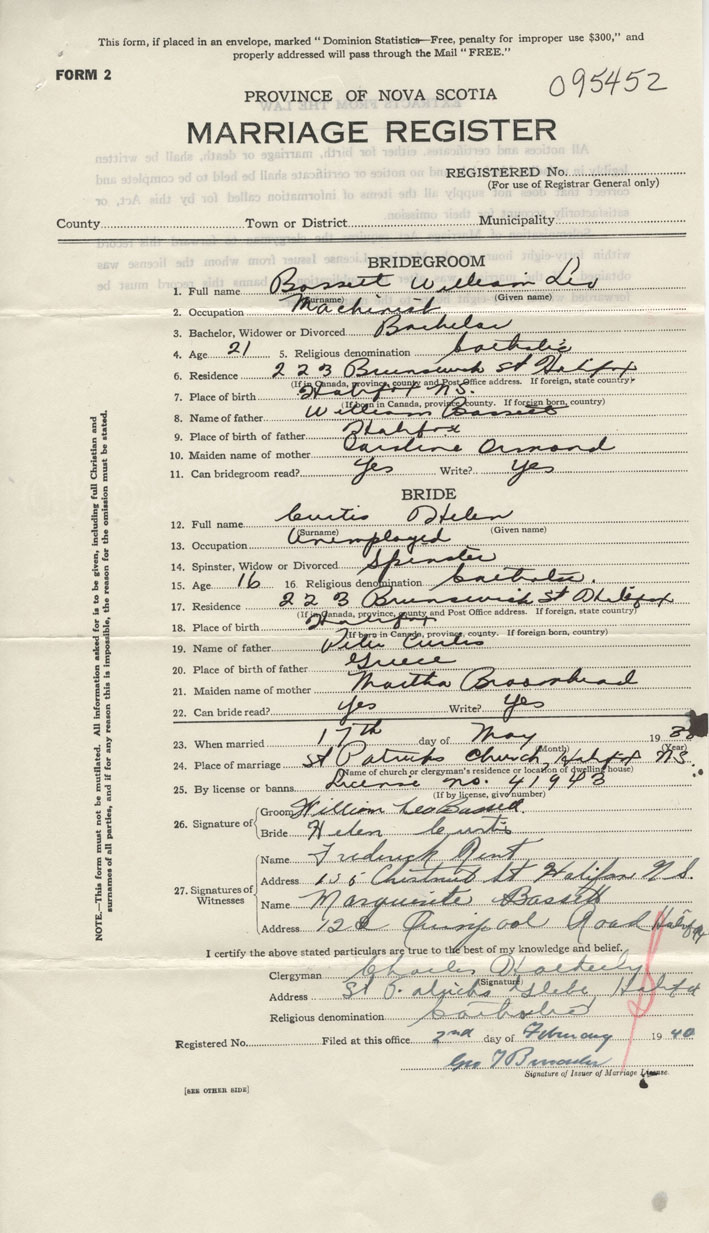 This form, if placed in an envelope, marked "Dominion Statistics—Free, penalty for improper use $300," and
properly addressed will pass through the Mail "FREE."
FORM 2
095452
PROVINCE OF NOVA SCOTIA
MARRIAGE REGISTER
REGISTERED No.
(For use of Registrar General only)
County Town or District Municipality
BRIDEGROOM
1. Full name Bassett William Leo
(Surname) (Given name)
2. Occupation Machinist
3. Bachelor, Widower or Divorced Bachelor
4. Age 21 5. Religious denomination Catholic
6. Residence 223 Brunswick St Halifax
(If in Canada, province, county and Post Office address. If foreign, state country)
7. Place of birth Halifax N.S.
(If born in Canada, province, county. If foreign born, country)
8. Name of father William Bassett
9. Place of birth of father Halifax
10. Maiden name of mother Caroline Ormond
11. Can bridegroom read? Yes Write? Yes
BRIDE
12. Full name Curtis Helen
(Surname) (Given name)
13. Occupation Unemployed
14. Spinster, Widow or Divorced Spinster
15. Age 16 16. Religious denomination Catholic.
17. Residence 223 Brunswick St Halifax
(If in Canada, province, county and Post Office address. If foreign, state country)
18. Place of birth Halifax
(If born in Canada, province, county. If foreign born, country)
19. Name of father Peter Curtis
20. Place of birth of father Greece
21. Maiden name of mother Martha Broomhead
22. Can bride read? Yes Write? Yes
23. When married 17th day of May 1938
(Month) (Year)
24. Place of marriage St Patricks Church, Halifax N.S.
(Name of church or clergyman's residence or location of dwelling house)
25. By license or banns License no. 41943
(If by license, give number)
26. Signature of Groom William Leo Bassett.
Bride Helen Curtis
27. Signatures of Witnesses
Name Frederick Kent
Address Chestnut St Halifax N.S.
Name Marguerite Bassett
Address Quinpool Road Halifax
I certify the above stated particulars are true to the best of my knowledge and belief.
Clergyman Charles
(Signature)
Address St Patricks Glebe, Halifax
Religious denomination Catholic
Registered No. Filed at this office 2nd day of February 1940
Geo
Signature of Issuer of Marriage License.
[SEE OTHER SIDE]
NOTE.—This form must not be mutilated. All information asked for is to be given, including full Christian and
surnames of all parties, and if for any reason this is impossible, the reason for the omission must be stated.